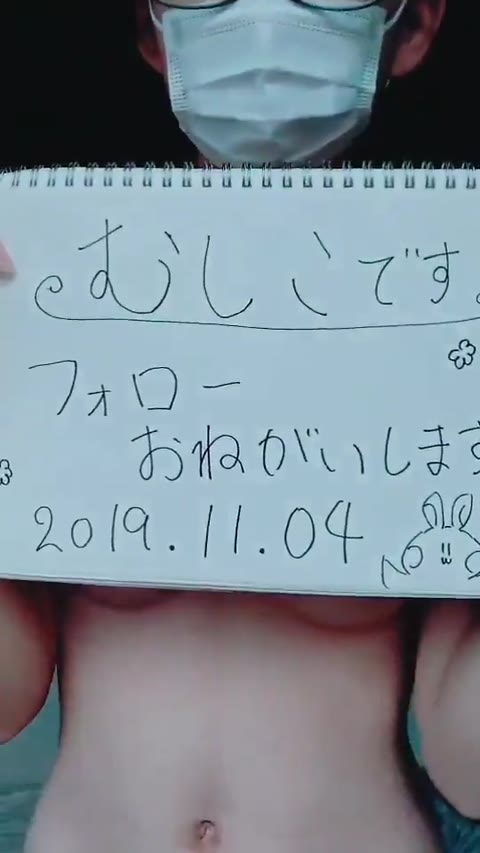 むしこです。
フォロー
おねがいします
2019.11.04